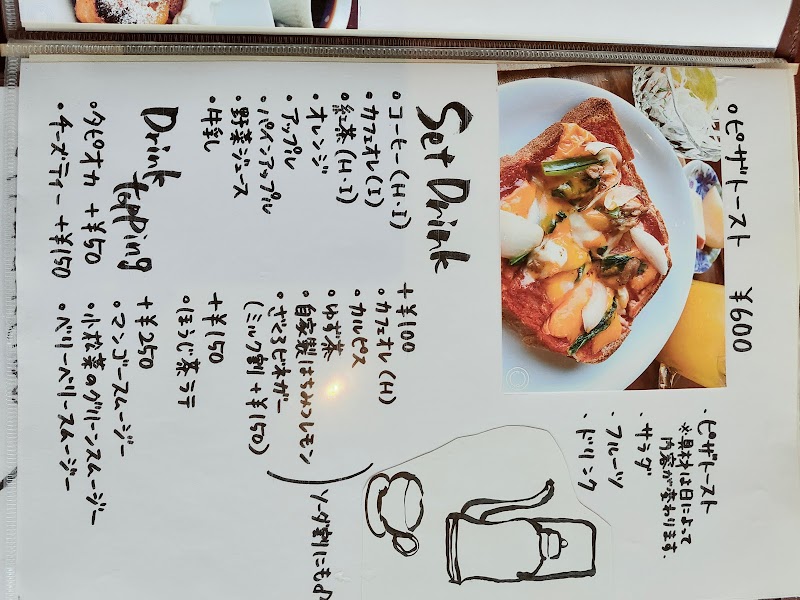 ○ピザトースト ¥600
・ピザトースト
※具材は日によって
内容が変わります。
・サラダ
・フルーツ
・ドリンク
Set Drink
・コーヒー(H・I)
・カフェオレ(I)
・紅茶(H・I)
・オレンジ
・アップル
・パインアップル
・野菜ジュース
・牛乳
+¥100
・カフェオレ(H)
・カルピス
・ゆず茶
・自家製はちみつレモン
・ざくろビネガー
(ミルク割+¥150)
ソーダ割にも♪
+¥150
・ほうじ茶ラテ
+¥250
・マンゴースムージー
・小松菜のグリーンスムージー
・ベリーベリースムージー
Drink topping
・タピオカ +¥50
・チーズティー +¥150